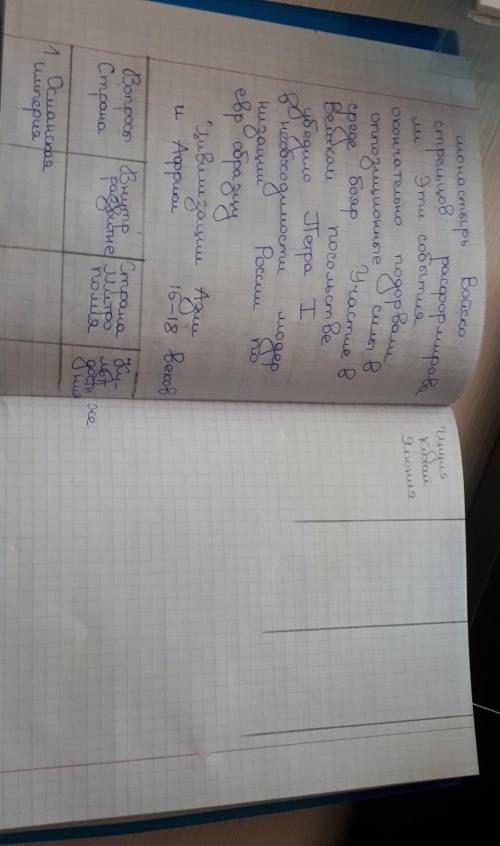 монастырь Войско
стрельцов расформирова
ли Эти события
окончательно подорвали
оппозиционные силы в
среде бояр. Участие в
Великом посольстве
убедило Петра I
в необходимости модер
низации России по
евр образцу
Цивилизации Азии
и Африки 15-18 веков
Вопросы
Страна
Внутр
развитие
Страна
Митро
полия
Ку-
льт
дости же
ния
1 Османская
империя
Индия
Китай
Япония